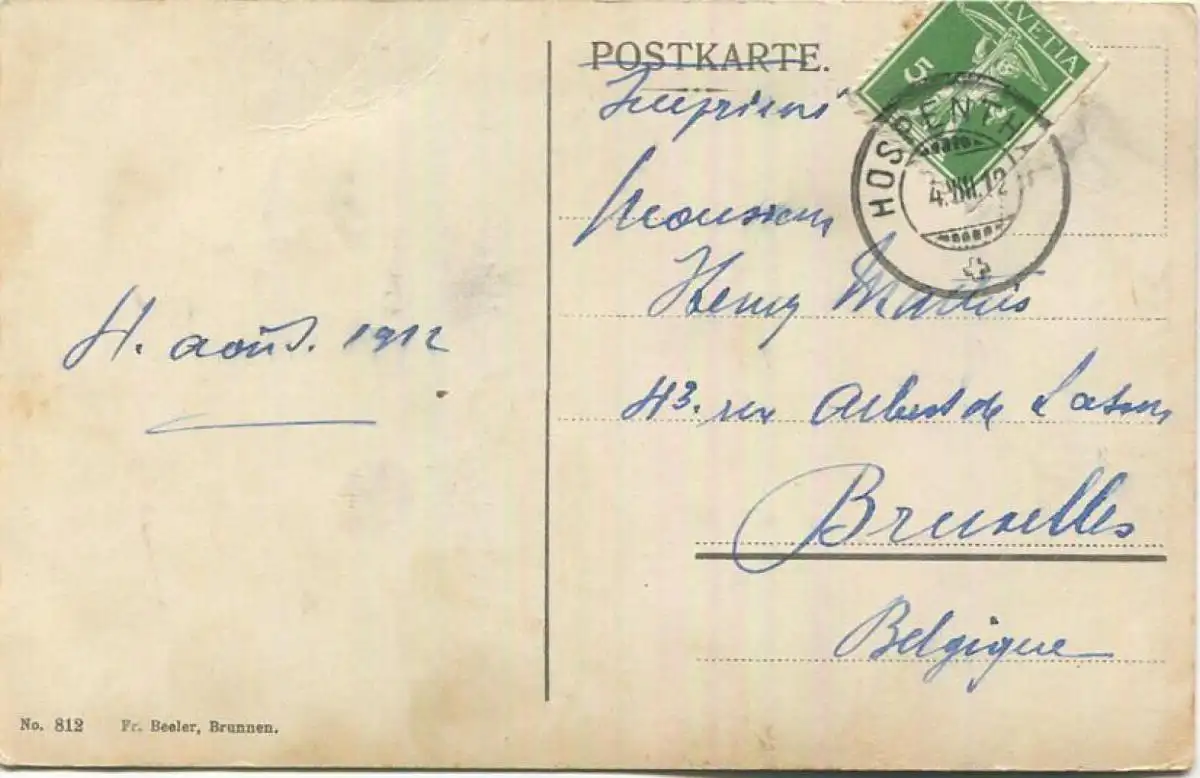 POSTKARTE.
HELVETIA
5
HOSPENTHAL
4.VIII.12
Imprimé
Monsieur
Henry
43. rue Albert de Latour
Bruxelles
Belgique
4. août. 1912
No. 812 Fr. Beeler, Brunnen.